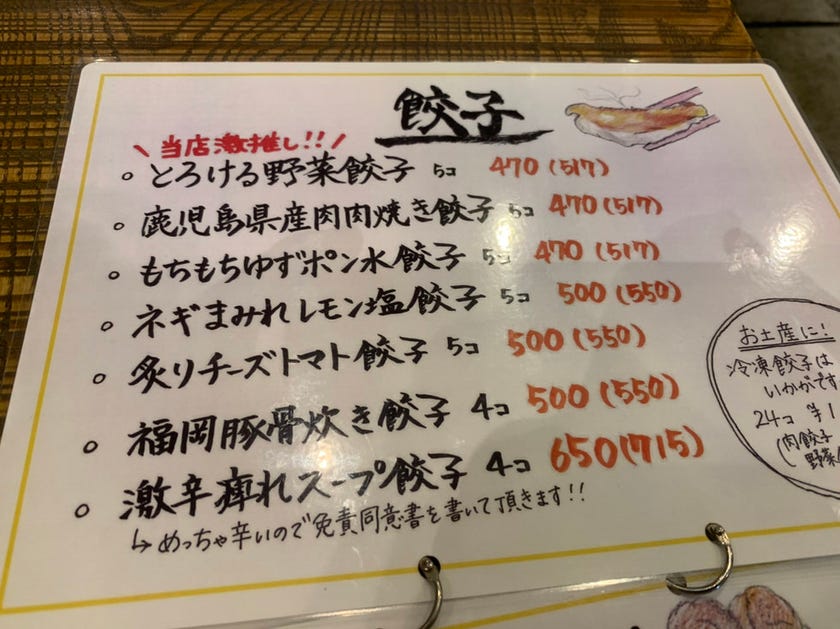 餃子
\ 当店激推し!! /
○ とろける野菜餃子 5コ 470(517)
○ 鹿児島県産肉肉焼き餃子 5コ 470(517)
○ もちもちゆずポン水餃子 5コ 470(517)
○ ネギまみれレモン塩餃子 5コ 500(550)
○ 炙りチーズトマト餃子 5コ 500(550)
○ 福岡豚骨炊き餃子 4コ 500(550)
○ 激辛痺れスープ餃子 4コ 650(715)
↳ めっちゃ辛いので免責同意書を書いて頂きます!!
お土産に!
冷凍餃子は
いかかです
24コ ¥1
(肉餃子
野菜